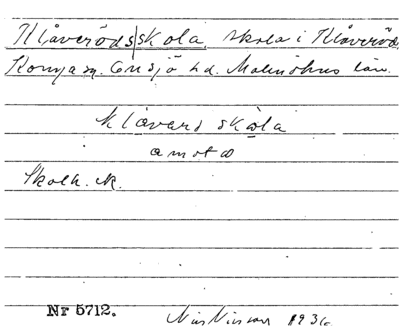 Klåveröds|skola, skola i Klåveröd,
Konga sn. Onsjö hd. Malmöhus län.
klåvarö skola
Skolk. ck.
Nr 5712.
Nils Nilsson 1936